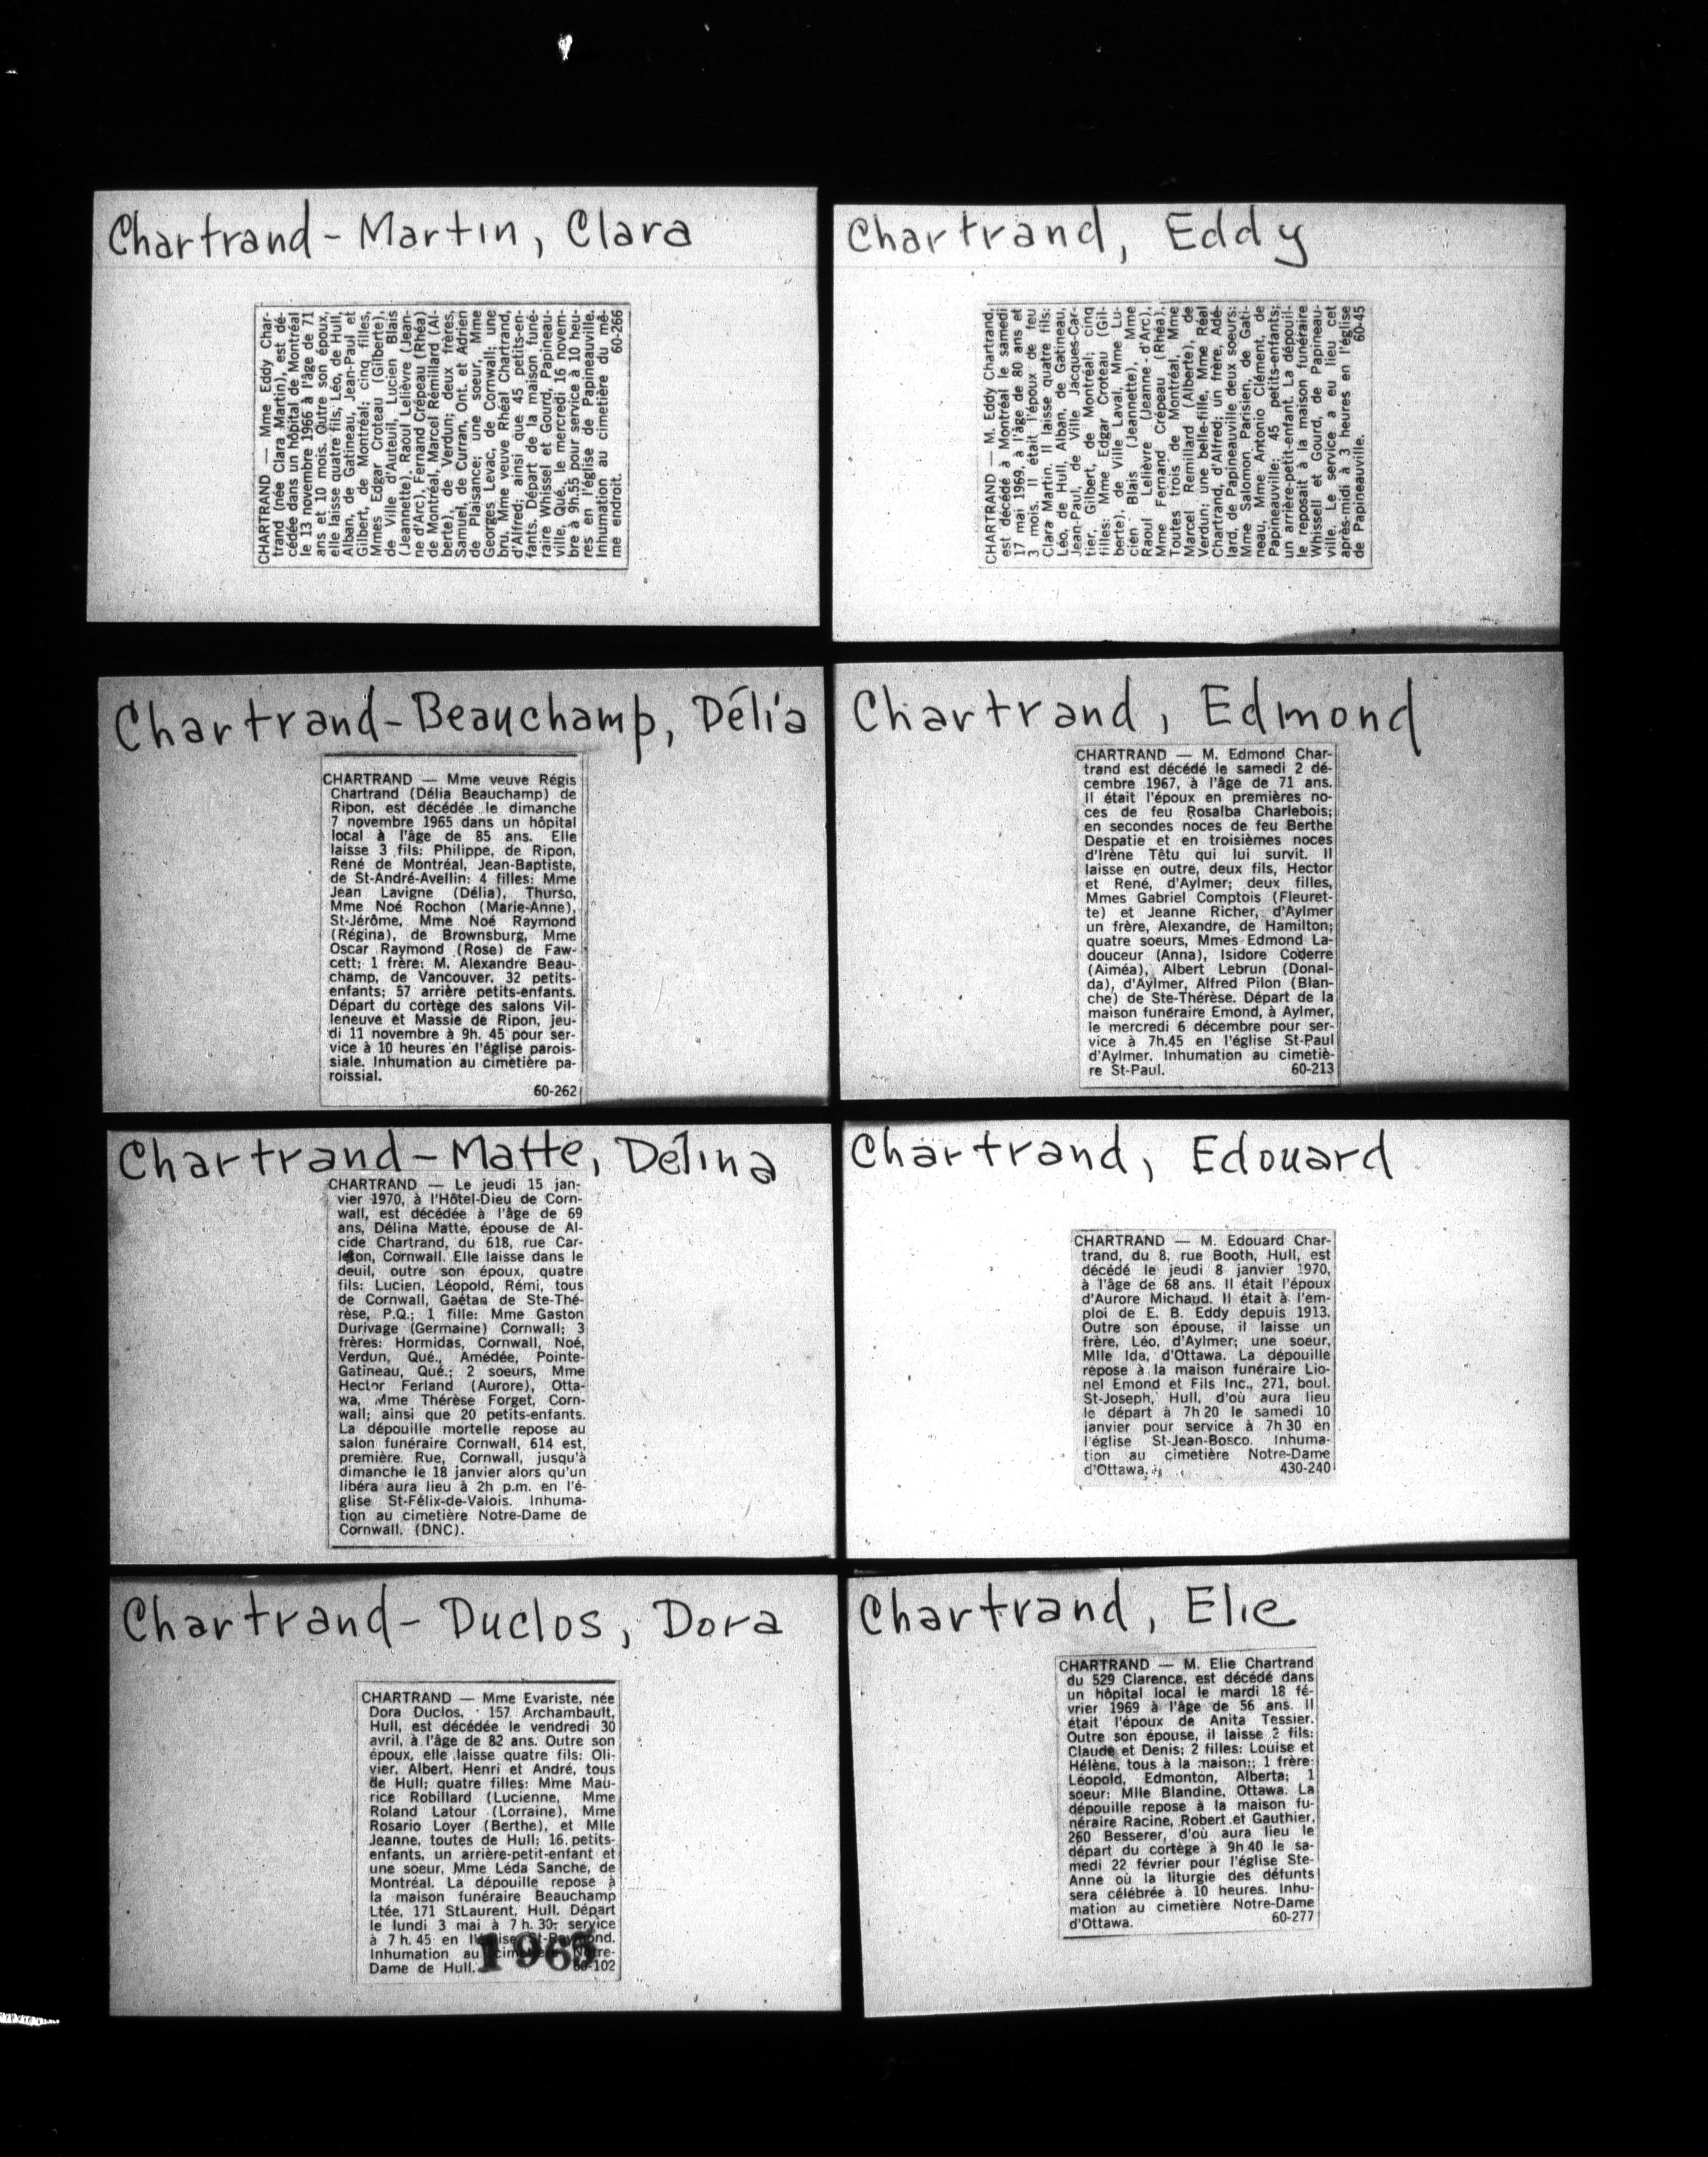 Chartrand - Martin, Clara
CHARTRAND — Mme Eddy Char-
trand (née Clara Martin), est dé-
cédée dans un hôpital de Montréal
le 13 novembre 1966 à l'âge de 71
ans et 10 mois. Outre son époux,
elle laisse quatre fils, Léo, de Hull,
Alban, de Gatineau, Jean-Paul et
Gilbert, de Montréal; cinq filles,
Mmes Edgar Croteau (Gilberte),
de Ville d'Auteuil, Lucien Blais
(Jeannette), Raoul Lelièvre (Jean-
ne d'Arc), Fernand Crépeau (Rhéa)
de Montréal, Marcel Rémillard (Al-
berte), de Verdun; deux frères,
Samuel, de Curran, Ont. et Adrien
de Plaisance; une soeur, Mme
Georges Levac, de Cornwall; une
bru, Mme veuve Rhéal Chartrand,
d'Alfred; ainsi que 45 petits-en-
fants. Départ de la maison funé-
raire Whissel et Gourd, Papineau-
ville, Qué., le mercredi 16 novem-
bre à 9h.55 pour service à 10 heu-
res en l'église de Papineauville.
Inhumation au cimetière du mê-
me endroit. 60-266
Chartrand, Eddy
CHARTRAND — M. Eddy Chartrand,
est décédé à Montréal le samedi
17 mai 1969, à l'âge de 80 ans et
3 mois. Il était l'époux de feu
Clara Martin. Il laisse quatre fils:
Léo, de Hull, Alban, de Gatineau,
Jean-Paul, de Ville Jacques-Car-
tier, Gilbert, de Montréal; cinq
filles: Mme Edgar Croteau (Gil-
berte), de Ville Laval, Mme Lu-
cien Blais (Jeannette), Mme
Raoul Lelièvre (Jeanne - d'Arc),
Mme Fernand Crépeau (Rhéa).
Toutes trois de Montréal, Mme
Marcel Remillard (Alberte), de
Verdun; une belle-fille, Mme Réal
Chartrand, d'Alfred; un frère, Adé-
lard, de Papineauville deux soeurs:
Mme Salomon Parisien, de Gati-
neau, Mme Antonio Clément, de
Papineauville; 45 petits-enfants;
un arrière-petit-enfant. La dépouil-
le reposait à la maison funéraire
Whissell et Gourd, de Papineau-
ville. Le service a eu lieu cet
après-midi à 3 heures en l'église
de Papineauville. 60-45
Chartrand-Beauchamp, Délia
CHARTRAND — Mme veuve Régis
Chartrand (Délia Beauchamp) de
Ripon, est décédée le dimanche
7 novembre 1965 dans un hôpital
local à l'âge de 85 ans. Elle
laisse 3 fils: Philippe, de Ripon,
René de Montréal, Jean-Baptiste,
de St-André-Avellin; 4 filles: Mme
Jean Lavigne (Délia), Thurso,
Mme Noé Rochon (Marie-Anne),
St-Jérôme, Mme Noé Raymond
(Régina), de Brownsburg, Mme
Oscar Raymond (Rose) de Faw-
cett; 1 frère: M. Alexandre Beau-
champ, de Vancouver. 32 petits-
enfants; 57 arrière petits-enfants.
Départ du cortège des salons Vil-
leneuve et Massie de Ripon, jeu-
di 11 novembre à 9h. 45 pour ser-
vice à 10 heures en l'église parois-
siale. Inhumation au cimetière pa-
roissial.
60-262
Chartrand, Edmond
CHARTRAND — M. Edmond Char-
trand est décédé le samedi 2 dé-
cembre 1967, à l'âge de 71 ans.
Il était l'époux en premières no-
ces de feu Rosalba Charlebois;
en secondes noces de feu Berthe
Despatie et en troisièmes noces
d'Irène Têtu qui lui survit. Il
laisse en outre, deux fils, Hector
et René, d'Aylmer; deux filles,
Mmes Gabriel Comptois (Fleuret-
te) et Jeanne Richer, d'Aylmer
un frère, Alexandre, de Hamilton;
quatre soeurs, Mmes Edmond La-
douceur (Anna), Isidore Coderre
(Aiméa), Albert Lebrun (Donal-
da), d'Aylmer, Alfred Pilon (Blan-
che) de Ste-Thérèse. Départ de la
maison funéraire Emond, à Aylmer,
le mercredi 6 décembre pour ser-
vice à 7h.45 en l'église St-Paul
d'Aylmer. Inhumation au cimetiè-
re St-Paul. 60-213
Chartrand-Matte, Délina
CHARTRAND — Le jeudi 15 jan-
vier 1970, à l'Hôtel-Dieu de Corn-
wall, est décédée à l'âge de 69
ans, Délina Matte, épouse de Al-
cide Chartrand, du 618, rue Car-
leton, Cornwall. Elle laisse dans le
deuil, outre son époux, quatre
fils: Lucien, Léopold, Rémi, tous
de Cornwall, Gaétan de Ste-Thé-
rèse, P.Q.; 1 fille: Mme Gaston
Durivage (Germaine) Cornwall; 3
frères: Hormidas, Cornwall, Noé,
Verdun, Qué., Amédée, Pointe-
Gatineau, Qué.; 2 soeurs, Mme
Hector Ferland (Aurore), Otta-
wa, Mme Thérèse Forget, Corn-
wall; ainsi que 20 petits-enfants.
La dépouille mortelle repose au
salon funéraire Cornwall, 614 est,
première. Rue, Cornwall, jusqu'à
dimanche le 18 janvier alors qu'un
libéra aura lieu à 2h p.m. en l'é-
glise St-Félix-de-Valois. Inhuma-
tion au cimetière Notre-Dame de
Cornwall. (DNC).
Chartrand, Edouard
CHARTRAND — M. Edouard Char-
trand, du 8, rue Booth, Hull, est
décédé le jeudi 8 janvier 1970,
à l'âge de 68 ans. Il était l'époux
d'Aurore Michaud. Il était à l'em-
ploi de E. B. Eddy depuis 1913.
Outre son épouse, il laisse un
frère, Léo, d'Aylmer; une soeur,
Mlle Ida, d'Ottawa. La dépouille
repose à la maison funéraire Lio-
nel Emond et Fils Inc., 271, boul.
St-Joseph, Hull, d'où aura lieu
le départ à 7h 20 le samedi 10
janvier pour service à 7h 30 en
l'église St-Jean-Bosco. Inhuma-
tion au cimetière Notre-Dame
d'Ottawa. 430-240
Chartrand-Duclos, Dora
CHARTRAND — Mme Evariste, née
Dora Duclos, 157 Archambault,
Hull, est décédée le vendredi 30
avril, à l'âge de 82 ans. Outre son
époux, elle laisse quatre fils: Oli-
vier, Albert, Henri et André, tous
de Hull; quatre filles: Mme Mau-
rice Robillard (Lucienne, Mme
Roland Latour (Lorraine), Mme
Rosario Loyer (Berthe), et Mlle
Jeanne, toutes de Hull; 16 petits-
enfants, un arrière-petit-enfant et
une soeur, Mme Léda Sanche, de
Montréal. La dépouille repose à
la maison funéraire Beauchamp
Ltée, 171 StLaurent, Hull. Départ
le lundi 3 mai à 7 h. 30; service
à 7 h. 45 en l'église St-Raymond.
Inhumation au cimetière Notre-
Dame de Hull. 60-102
1965
Chartrand, Elie
CHARTRAND — M. Elie Chartrand
du 529 Clarence, est décédé dans
un hôpital local le mardi 18 fé-
vrier 1969 à l'âge de 56 ans. Il
était l'époux de Anita Tessier.
Outre son épouse, il laisse 2 fils:
Claude et Denis; 2 filles: Louise et
Hélène, tous à la maison;; 1 frère:
Léopold, Edmonton, Alberta; 1
soeur: Mlle Blandine, Ottawa. La
dépouille repose à la maison fu-
néraire Racine, Robert et Gauthier,
260 Besserer, d'où aura lieu le
départ du cortège à 9h 40 le sa-
medi 22 février pour l'église Ste-
Anne où la liturgie des défunts
sera célébrée à 10 heures. Inhu-
mation au cimetière Notre-Dame
d'Ottawa. 60-277